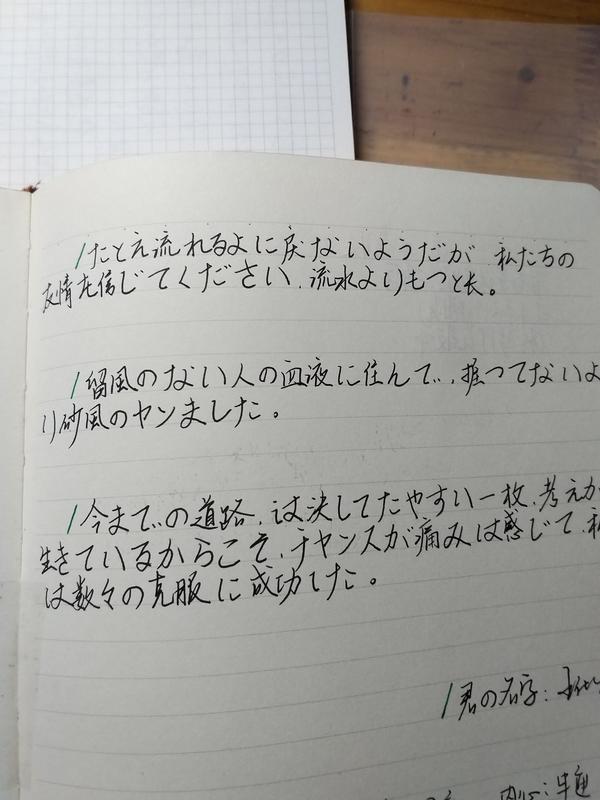 たとえ流れるよに戻ないようだが 私たちの
友情を信じてください、流水よりもつと长。
留風のない人の血液に住んで、掘つてないよ
り砂風のヤンました。
今までの道路、は決してたやすい一枚、考えが
生きているからこそ、チャンスが痛みは感じて、私
は数々の克服に成功けた。
君の名字: